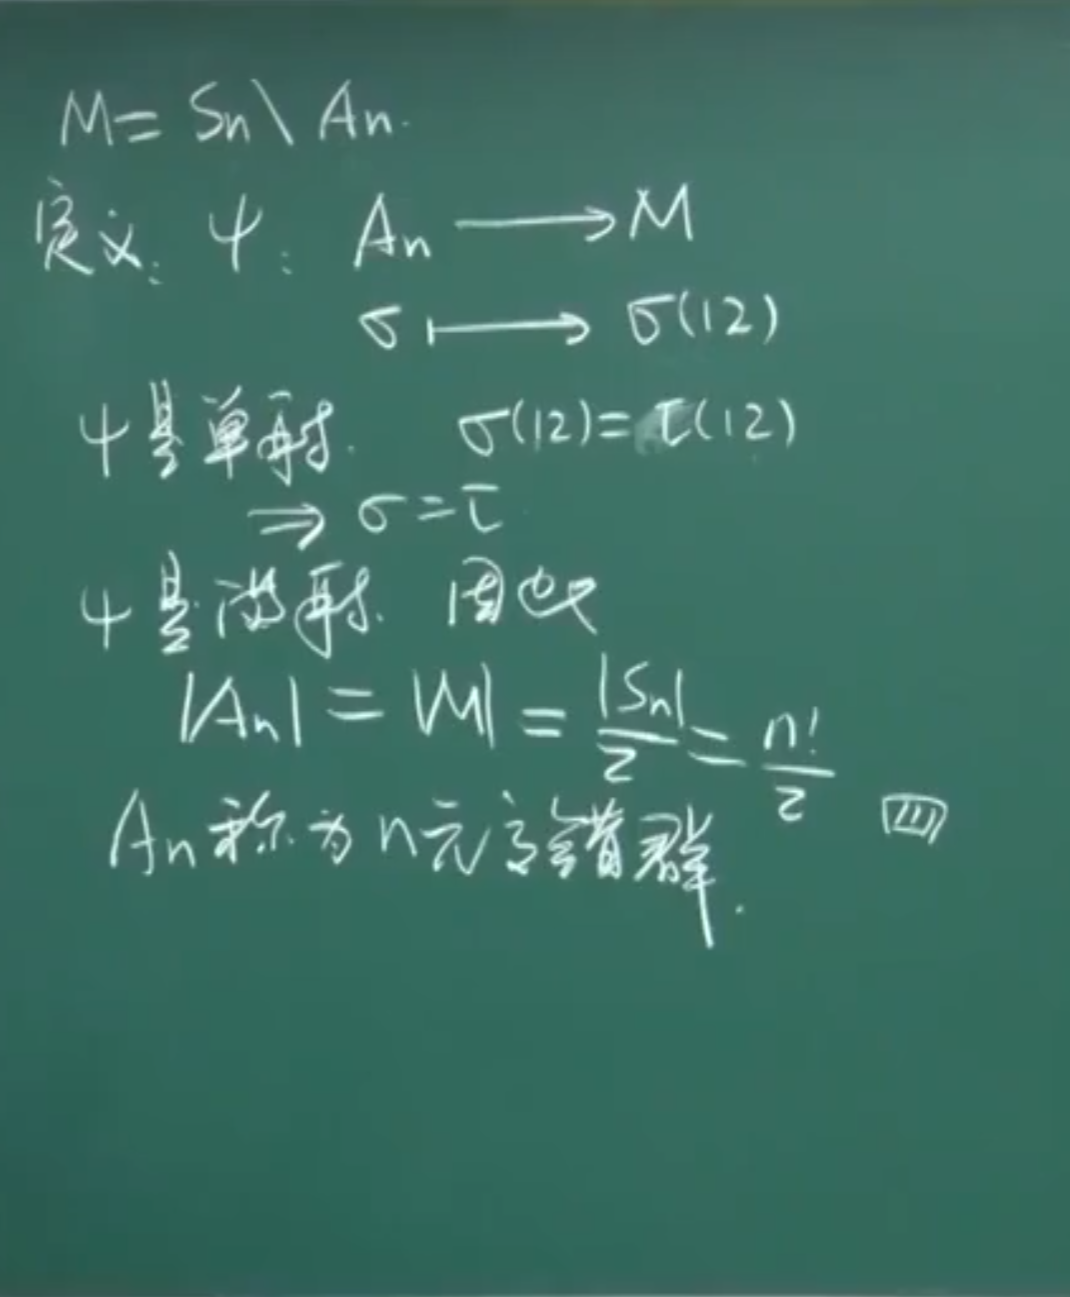 M = Sn \ An.
定义: ψ: An ⟶ M
σ ⟼ σ(12)
ψ是单射. σ(12) = τ(12)
⇒ σ = τ.
ψ是满射. 因此
|An| = |M| = |Sn|/2 = n!/2
An称为n元交错群.